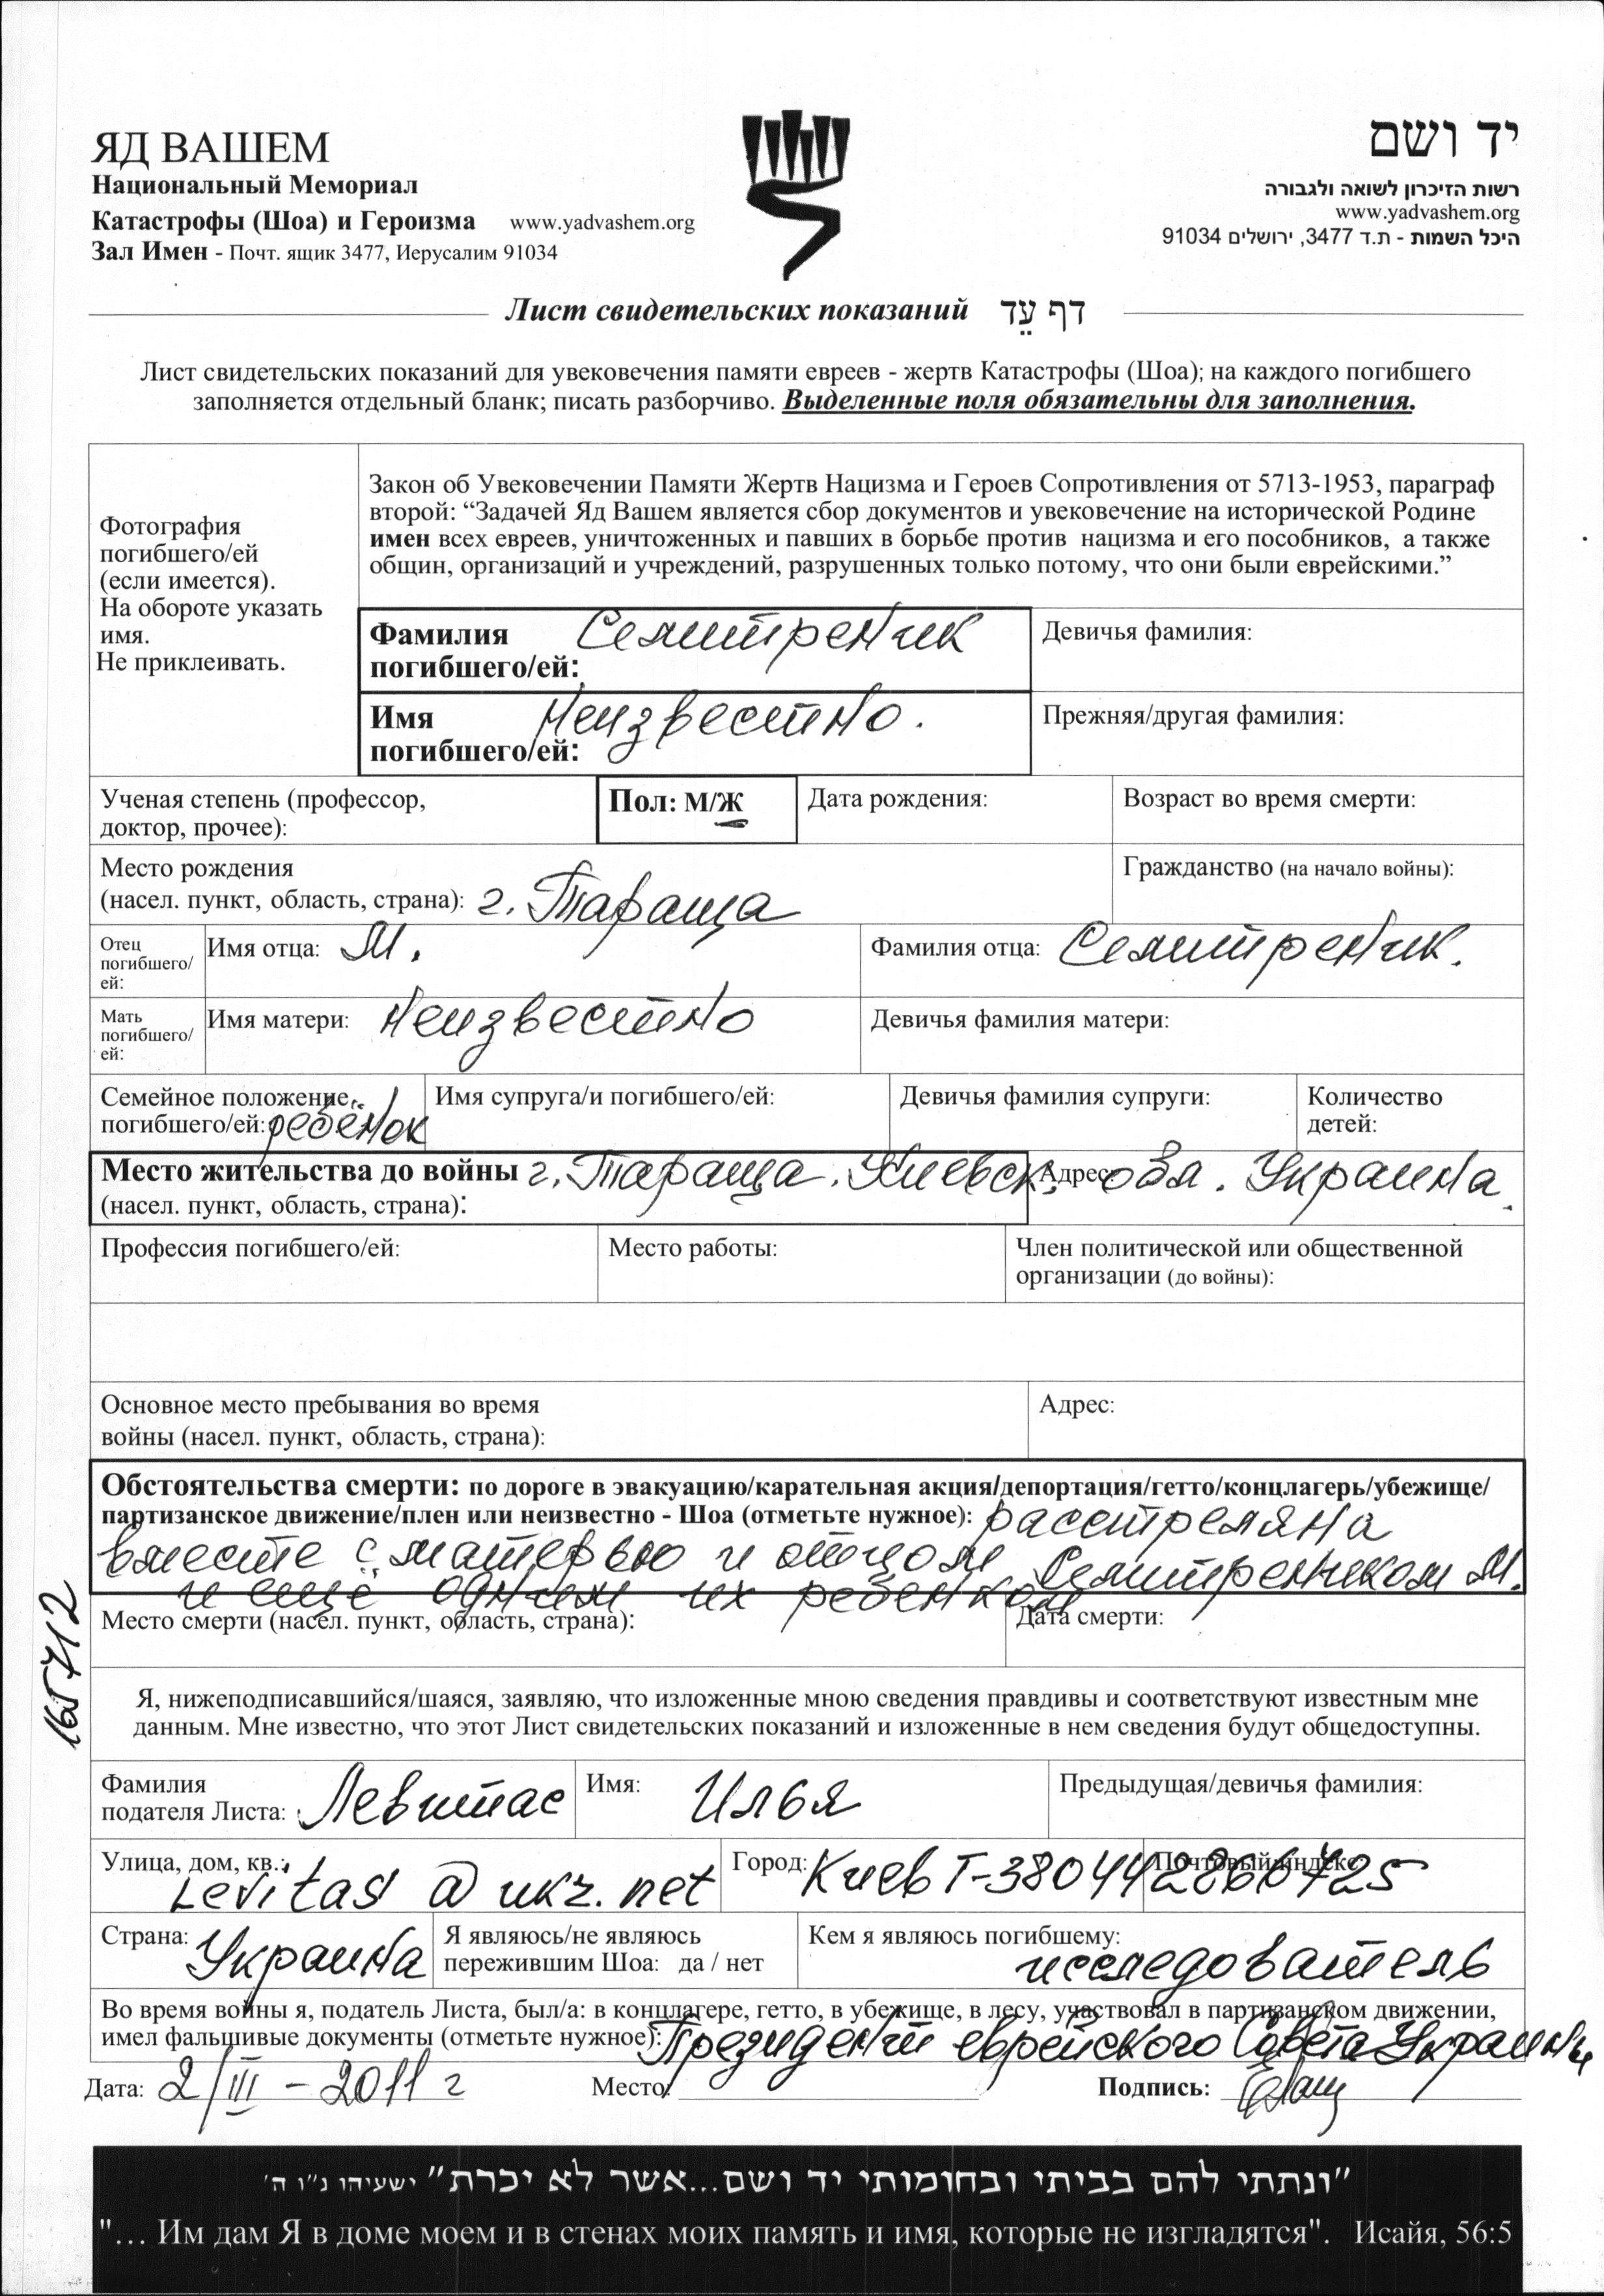 ЯД ВАШЕМ
Национальный Мемориал
Катастрофы (Шоа) и Героизма www.yadvashem.org
Зал Имен - Почт. ящик 3477, Иерусалим 91034
יד ושם
רשות הזיכרון לשואה ולגבורה
www.yadvashem.org
היכל השמות - ת.ד 3477, ירושלים 91034
Лист свидетельских показаний דף עֵד
Лист свидетельских показаний для увековечения памяти евреев - жертв Катастрофы (Шоа); на каждого погибшего
заполняется отдельный бланк; писать разборчиво. Выделенные поля обязательны для заполнения.
Фотография
погибшего/ей
(если имеется).
На обороте указать
имя.
Не приклеивать.
Закон об Увековечении Памяти Жертв Нацизма и Героев Сопротивления от 5713-1953, параграф
второй: “Задачей Яд Вашем является сбор документов и увековечение на исторической Родине
имен всех евреев, уничтоженных и павших в борьбе против нацизма и его пособников, а также
общин, организаций и учреждений, разрушенных только потому, что они были еврейскими.”
Фамилия Селитренник
погибшего/ей:
Девичья фамилия:
Имя Неизвестно.
погибшего/ей:
Прежняя/другая фамилия:
Ученая степень (профессор,
доктор, прочее):
Пол: М/Ж
Дата рождения:
Возраст во время смерти:
Место рождения
(насел. пункт, область, страна): г. Тараща
Гражданство (на начало войны):
Отец
погибшего/
ей:
Имя отца: М.
Фамилия отца: Селитренник.
Мать
погибшего/
ей:
Имя матери: Неизвестно
Девичья фамилия матери:
Семейное положение
погибшего/ей: ребёнок
Имя супруга/и погибшего/ей:
Девичья фамилия супруги:
Количество
детей:
Место жительства до войны г. Тараща. Киевск. обл. Украина.
(насел. пункт, область, страна):
Адрес:
Профессия погибшего/ей:
Место работы:
Член политической или общественной
организации (до войны):
Основное место пребывания во время
войны (насел. пункт, область, страна):
Адрес:
Обстоятельства смерти: по дороге в эвакуацию/карательная акция/депортация/гетто/концлагерь/убежище/
партизанское движение/плен или неизвестно - Шоа (отметьте нужное): расстреляна
вместе с матерью и отцом Селитренником М.
и ещё одним их ребенком
Место смерти (насел. пункт, область, страна):
Дата смерти:
165712
Я, нижеподписавшийся/шаяся, заявляю, что изложенные мною сведения правдивы и соответствуют известным мне
данным. Мне известно, что этот Лист свидетельских показаний и изложенные в нем сведения будут общедоступны.
Фамилия
подателя Листа: Левитас
Имя: Илья
Предыдущая/девичья фамилия:
Улица, дом, кв.:
Levitas @ ukr.net
Город: Киев Т-380442866725
Почтовый индекс:
Страна: Украина
Я являюсь/не являюсь
пережившим Шоа: да / нет
Кем я являюсь погибшему:
исследователь
Во время войны я, податель Листа, был/а: в концлагере, гетто, в убежище, в лесу, участвовал в партизанском движении,
имел фальшивые документы (отметьте нужное): Президент еврейского Совета Украины
Дата: 2/III - 2011 г
Место:
Подпись:
"ונתתי להם בביתי ובחומותי יד ושם...אשר לא יכרת" ישעיהו נ"ו ה'
"... Им дам Я в доме моем и в стенах моих память и имя, которые не изгладятся". Исайя, 56:5